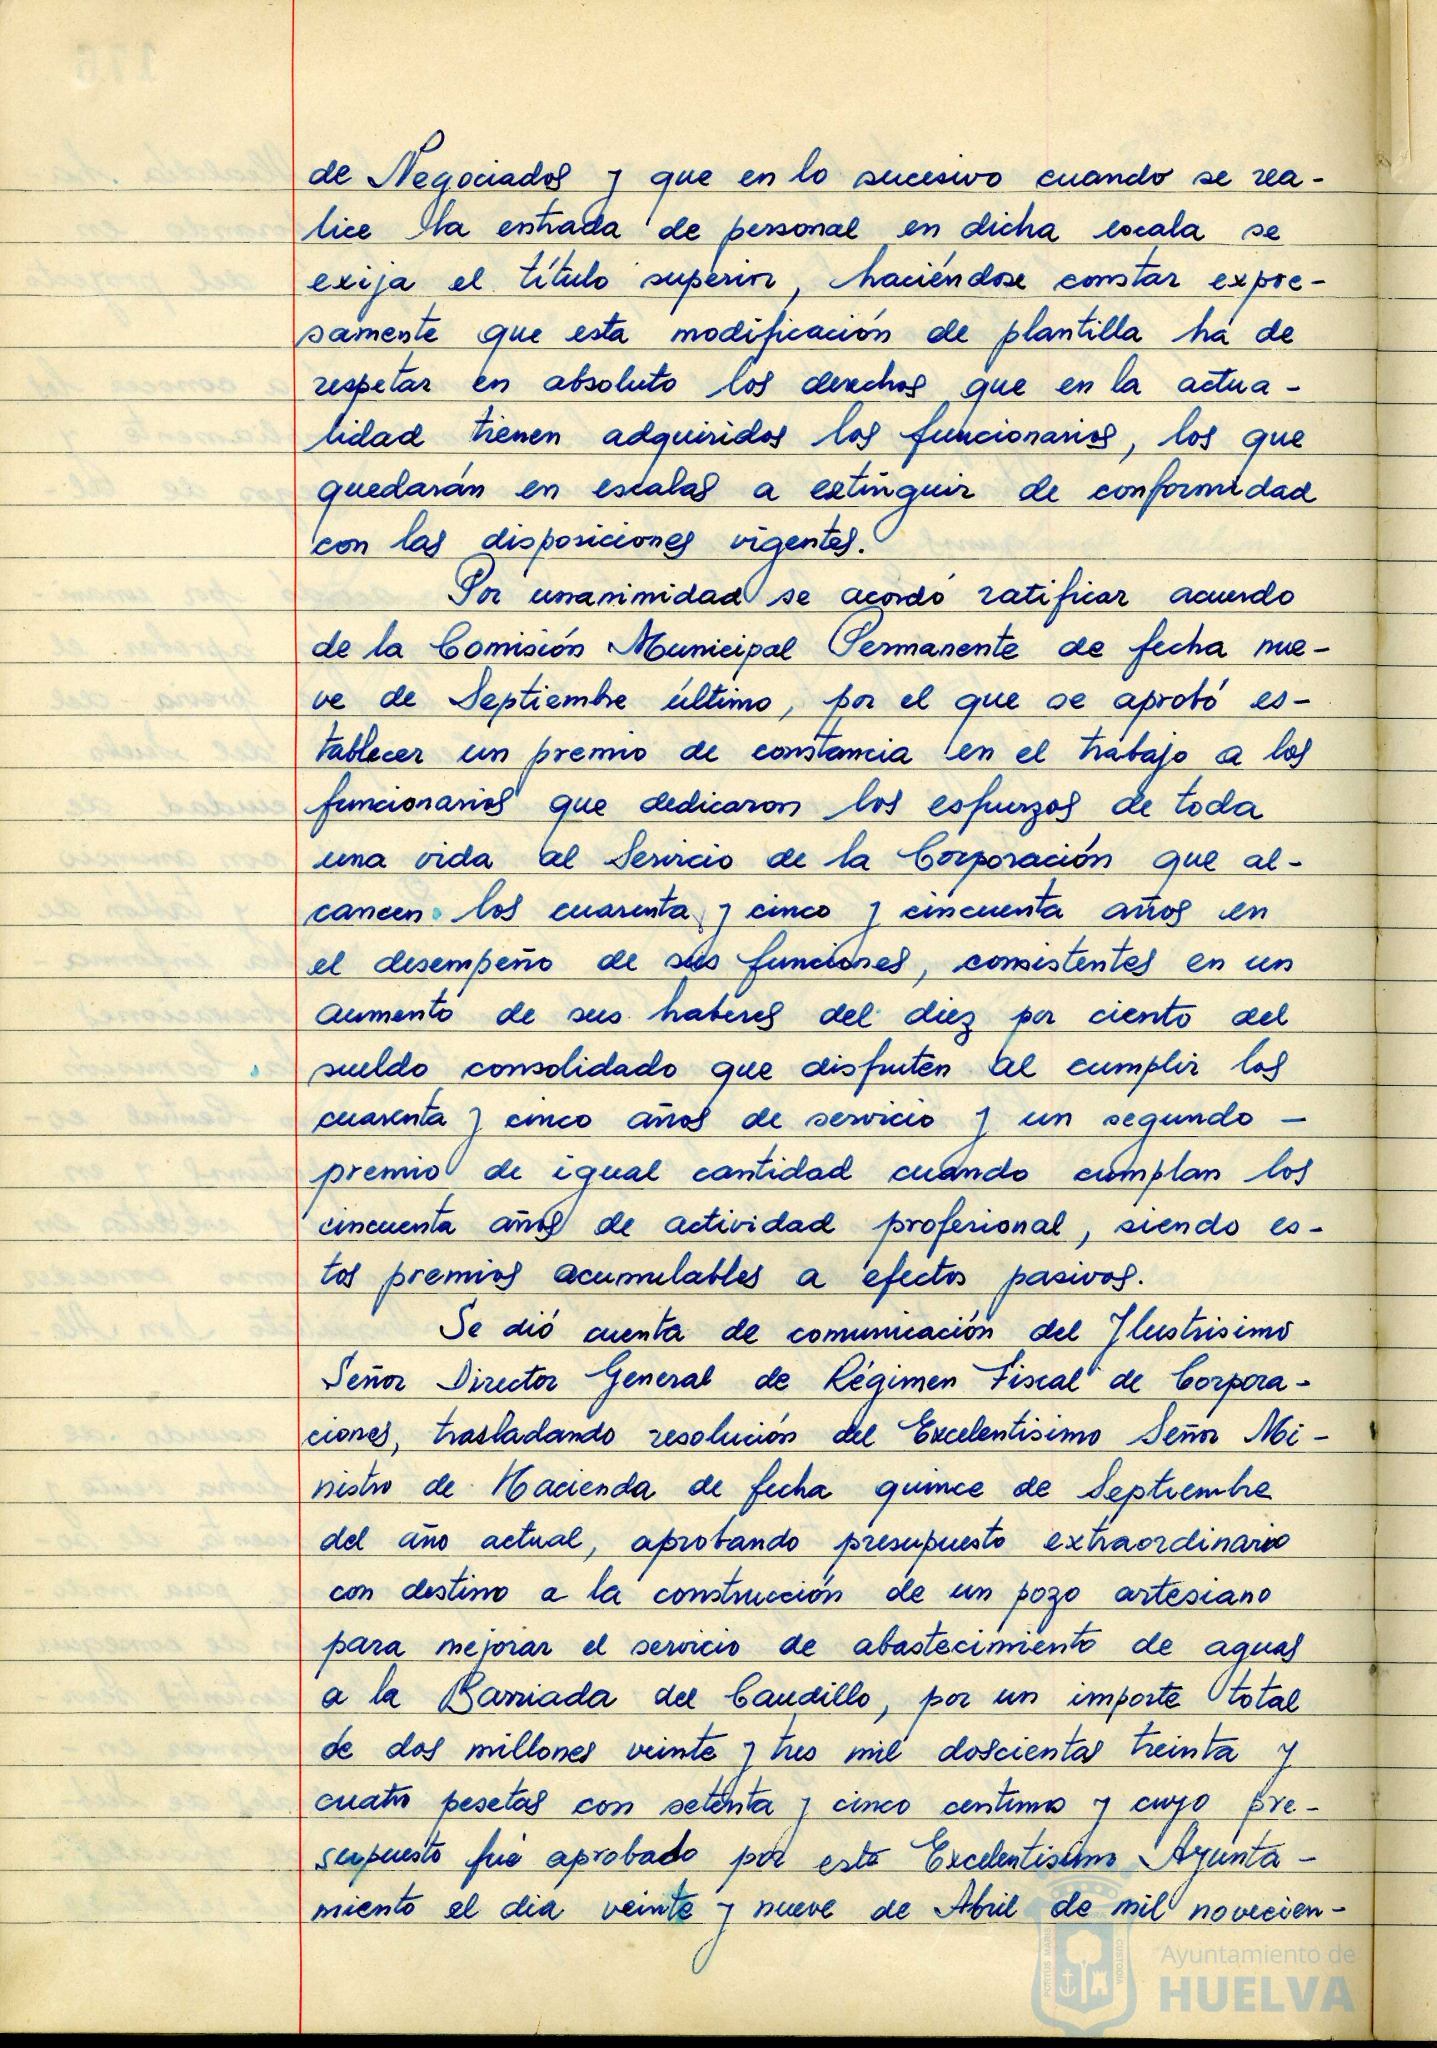 de Negociados y que en lo sucesivo cuando se rea-
lice la entrada de personal en dicha escala se
exija el título superior, haciéndose constar expre-
samente que esta modificación de plantilla ha de
respetar en absoluto los derechos que en la actua-
lidad tienen adquiridos los funcionarios, los que
quedarán en escalas a extinguir de conformidad
con las disposiciones vigentes.
Por unanimidad se acordó ratificar acuerdo
de la Comisión Municipal Permanente de fecha nue-
ve de Septiembre último, por el que se aprobó es-
tablecer un premio de constancia en el trabajo a los
funcionarios que dedicaron los esfuerzos de toda
una vida al Servicio de la Corporación que al-
cancen los cuarenta y cinco y cincuenta años en
el desempeño de sus funciones, consistentes en un
aumento de sus haberes del diez por ciento del
sueldo consolidado que disfruten al cumplir los
cuarenta y cinco años de servicio y un segundo -
premio de igual cantidad cuando cumplan los
cincuenta años de actividad profesional, siendo es-
tos premios acumulables a efectos pasivos.
Se dió cuenta de comunicación del Ilustrisimo
Señor Director General de Régimen Fiscal de Corpora-
ciones, trasladando resolución del Excelentisimo Señor Mi-
nistro de Hacienda de fecha quince de Septiembre
del año actual, aprobando presupuesto extraordinario
con destino a la construcción de un pozo artesiano
para mejorar el servicio de abastecimiento de aguas
a la Barriada del Caudillo, por un importe total
de dos millones veinte y tres mil doscientas treinta y
cuatro pesetas con setenta y cinco centimos y cuyo pre-
supuesto fué aprobado por este Excelentisimo Ayunta-
miento el dia veinte y nueve de Abril de mil novecien-
PORTUS MARIS
CUSTODIA
Ayuntamiento de
HUELVA